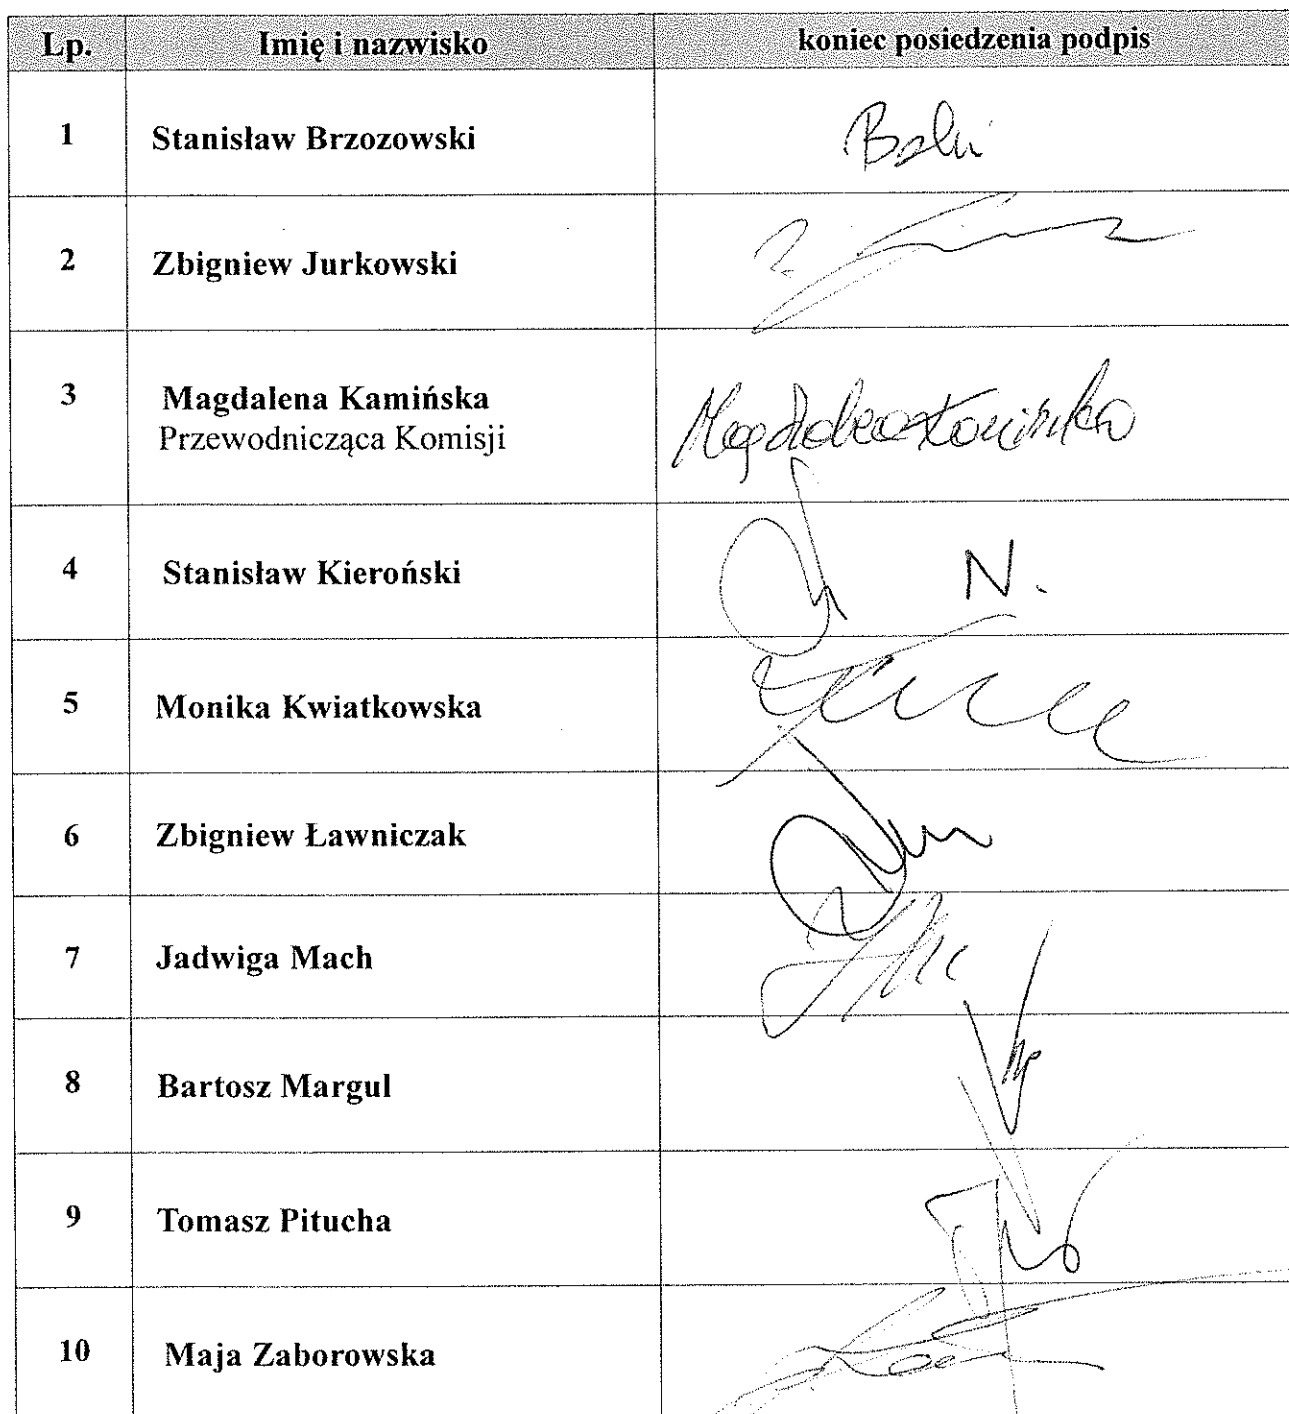 Lp. Imię i nazwisko koniec posiedzenia podpis
1 Stanisław Brzozowski
2 Zbigniew Jurkowski
3 Magdalena Kamińska Magdalena Kamińska
Przewodnicząca Komisji
4 Stanisław Kieroński N.
5 Monika Kwiatkowska
6 Zbigniew Ławniczak
7 Jadwiga Mach
8 Bartosz Margul
9 Tomasz Pitucha
10 Maja Zaborowska